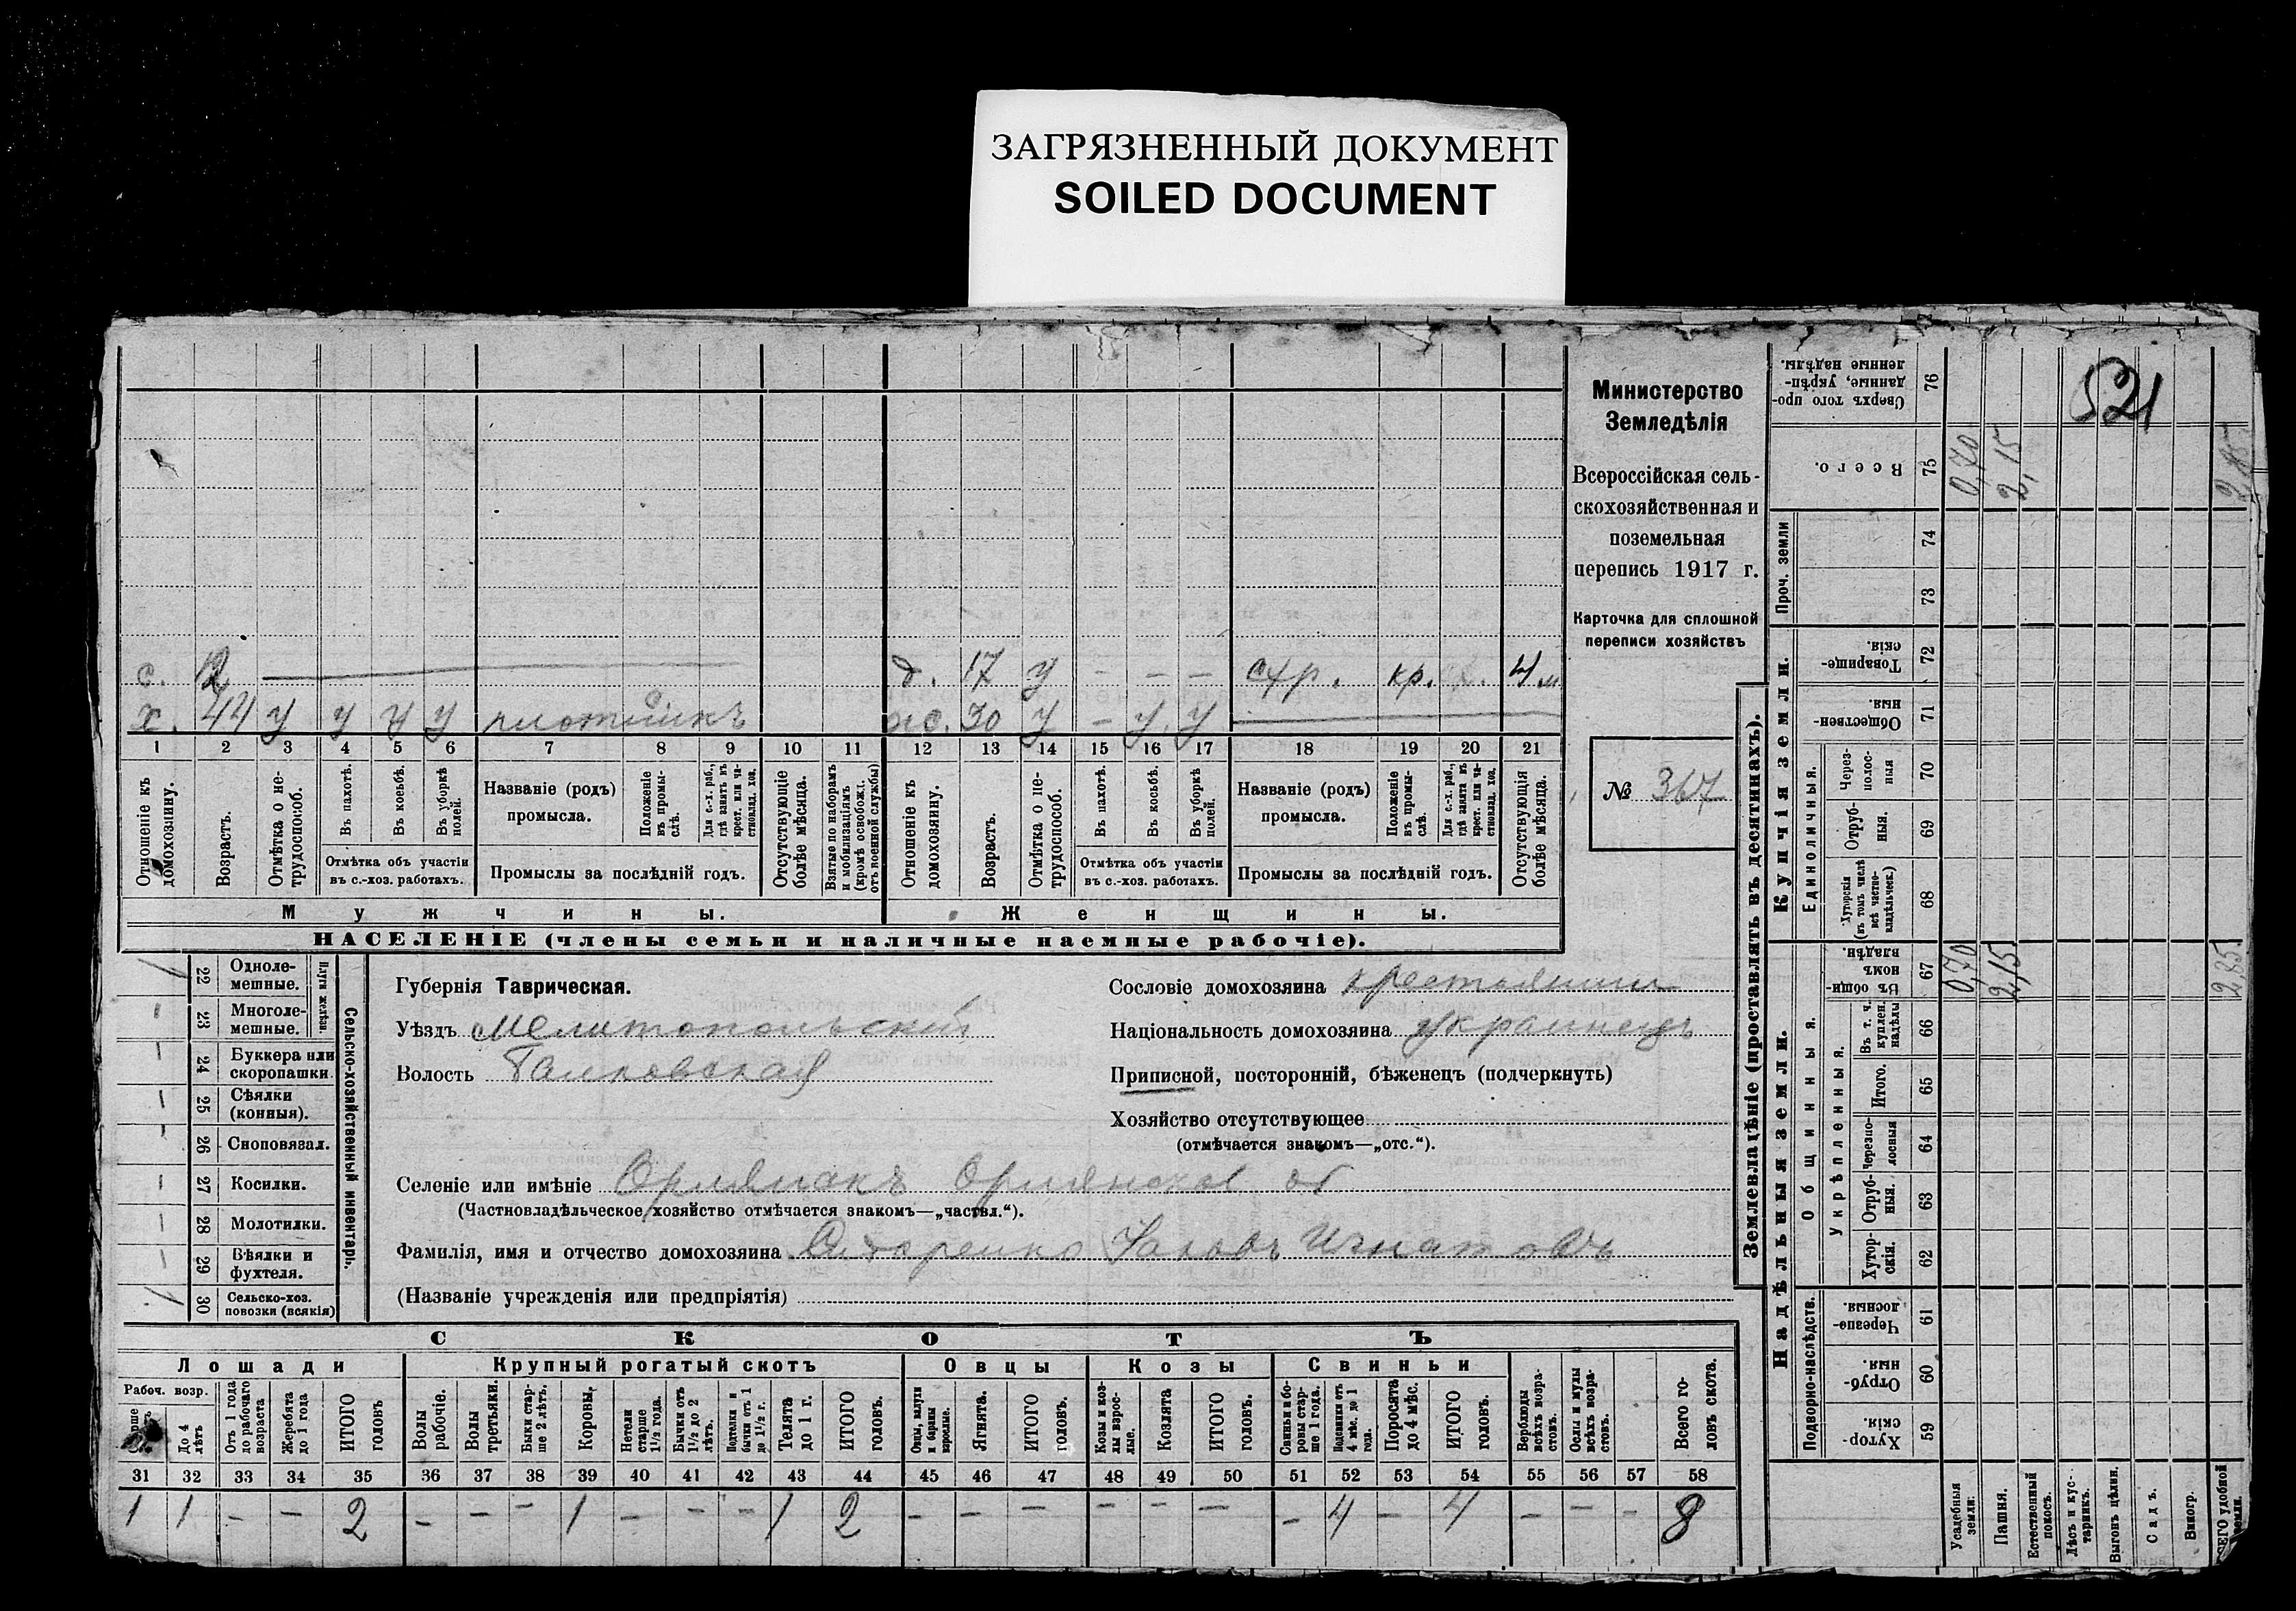 ЗАГРЯЗНЕННЫЙ ДОКУМЕНТ
SOILED DOCUMENT
с. 12 д. 17 у - - - стр. кр. 4 м
х. 44 у у у у плотникъ ж. 30 у - у. у
1 2 3 4 5 6 7 8 9 10 11 12 13 14 15 16 17 18 19 20 21
Отношеніе къ домохозяину.
Возрастъ.
Отмѣтка о нетрудоспособ.
Въ пахотѣ.
Въ косьбѣ.
Въ уборкѣ полей.
Отмѣтка объ участіи въ с.-хоз. работахъ.
Названіе (родъ) промысла.
Положеніе въ промыслѣ.
Для с.-х. раб., гдѣ занятъ въ крест. или частновлад. хоз.
Промыслы за послѣдній годъ.
Отсутствующіе болѣе мѣсяца.
Взятые по наборамъ и мобилизаціямъ (кромѣ освобожд. отъ военной службы)
Отношеніе къ домохозяину.
Возрастъ.
Отмѣтка о нетрудоспособ.
Въ пахотѣ.
Въ косьбѣ.
Въ уборкѣ полей.
Отмѣтка объ участіи въ с.-хоз. работахъ.
Названіе (родъ) промысла.
Положеніе въ промыслѣ.
Для с.-х. раб., гдѣ занята въ крест. или частновлад. хоз.
Промыслы за послѣдній годъ.
Отсутствующія болѣе мѣсяца.
Мужчины. Женщины.
НАСЕЛЕНІЕ (члены семьи и наличные наемные рабочіе).
Министерство
Земледѣлія
Всероссійская сель-
скохозяйственная и
поземельная
перепись 1917 г.
Карточка для сплошной
переписи хозяйствъ
№ 367
Сельско-хозяйственный инвентарь.
Плуги желѣзн.
1 22 Однолемешные.
- 23 Многолемешные.
- 24 Буккера или скоропашки.
- 25 Сѣялки (конныя).
- 26 Сноповязал.
- 27 Косилки.
- 28 Молотилки.
- 29 Вѣялки и фухтеля.
1 30 Сельско-хоз. повозки (всякія)
Губернія Таврическая.
Уѣздъ Мелитопольскій
Волость
Сословіе домохозяина крестьянин
Національность домохозяина украинецъ
Приписной, посторонній, бѣженецъ (подчеркнуть)
Хозяйство отсутствующее
(отмѣчается знакомъ—„отс.“).
Селеніе или имѣніе Орлянскъ Орлянское
(Частновладѣльческое хозяйство отмѣчается знакомъ—„частвл.“).
Фамилія, имя и отчество домохозяина Сидоренко Яковъ Игнатовъ
(Названіе учрежденія или предпріятія)
СКОТЪ
Лошади Крупный рогатый скотъ Овцы Козы Свиньи
Рабоч. возр.
До 4 лѣтъ
Отъ 1 года до рабочаго возраста
Жеребята до 1 года
ИТОГО головъ
Волы рабочіе.
Волы третьяки.
Быки старше 2 лѣтъ.
Коровы.
Нетели старше 1½ года.
Бычки отъ 1½ до 2 лѣтъ.
Подтелки и бычки отъ 1 до 1½ г.
Телята до 1 г.
ИТОГО головъ.
Овцы, валухи и бараны взрослые.
Ягнята.
ИТОГО головъ.
Козы и козлы взрослые.
Козлята
ИТОГО головъ.
Свиньи и боровы старше 1 года.
Подсвинки отъ 4 мѣс. до 1 года.
Поросята до 4 мѣс.
ИТОГО головъ.
Верблюды всѣхъ возрастовъ.
Ослы и мулы всѣхъ возрастовъ.
Всего головъ скота.
31 32 33 34 35 36 37 38 39 40 41 42 43 44 45 46 47 48 49 50 51 52 53 54 55 56 57 58
1 1 - - 2 - - - 1 - - - 1 2 - - - - - - - 4 - 4 - - - 8
Землевладѣніе (проставлять въ десятинахъ).
521
Сверхъ того проданные, укрѣпленные надѣлы. 76
Всего. 75 0,70 2,15 2,85
Проч. земли
74
73
Купчія земли.
Товарищескія. 72
Общественныя 71
Единоличныя.
Черезполосныя 70
Отрубныя. 69
Хуторскія (въ томъ числѣ всѣ частновладѣльческ.) 68
Надѣльныя земли.
Общинныя.
Въ общинномъ владѣн. 67 0,70 2,15 2,85
Укрѣпленныя.
Въ т. ч. куплен. надѣлы 66
Итого. 65
Черезполосныя 64
Отрубныя. 63
Хуторскія. 62
Подворно-наслѣдств.
Черезполосныя. 61
Отрубныя. 60
Хуторскія. 59
Усадебныя земли.
Пашня.
Естественный покосъ.
Лѣсъ и кустарникъ.
Выгонъ цѣлин.
Садъ.
Виногр.
удобной земли.